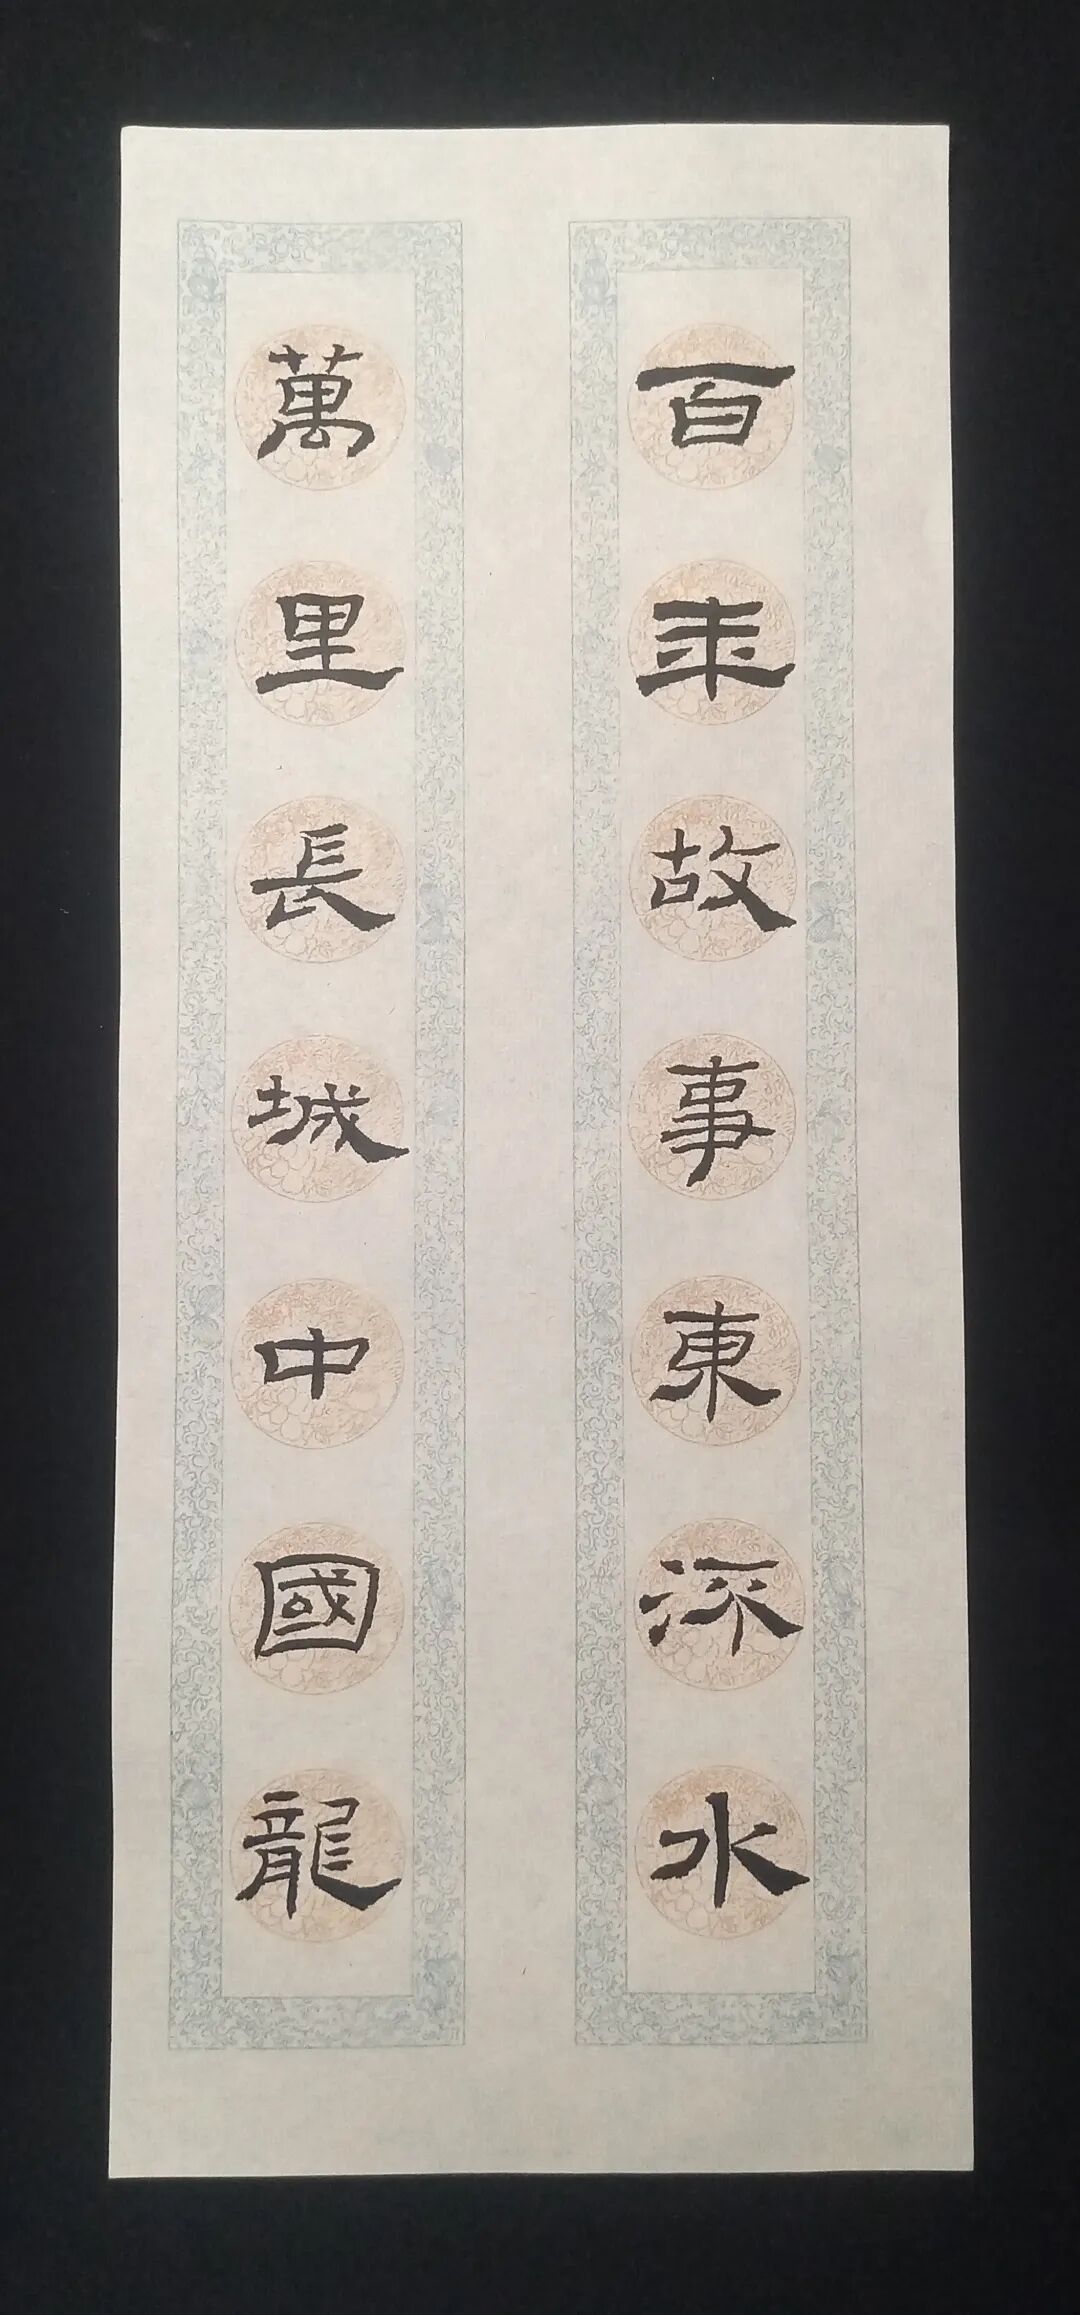 百年故事東流水
萬里長城中國龍